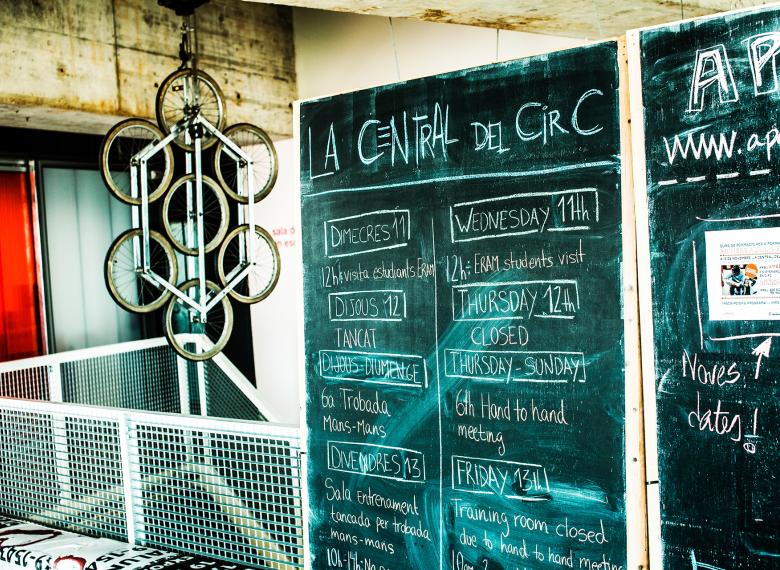 LA CENTRAL DEL CIRC
DIMECRES 11
12h: visita estudiants ERAM
DIJOUS 12
TANCAT
DIJOUS-DIUMENGE
6a Trobada
Mans-Mans
DIVENDRES 13
Sala entrenament
tancada per trobada
mans-mans
WEDNESDAY 11th
12h: ERAM students visit
THURSDAY 12th
CLOSED
THURSDAY-SUNDAY
6th Hand to hand
meeting
FRIDAY 13th
Training room closed
due to hand to hand meeting
AP
www.ap
Noves
dates!
sala d